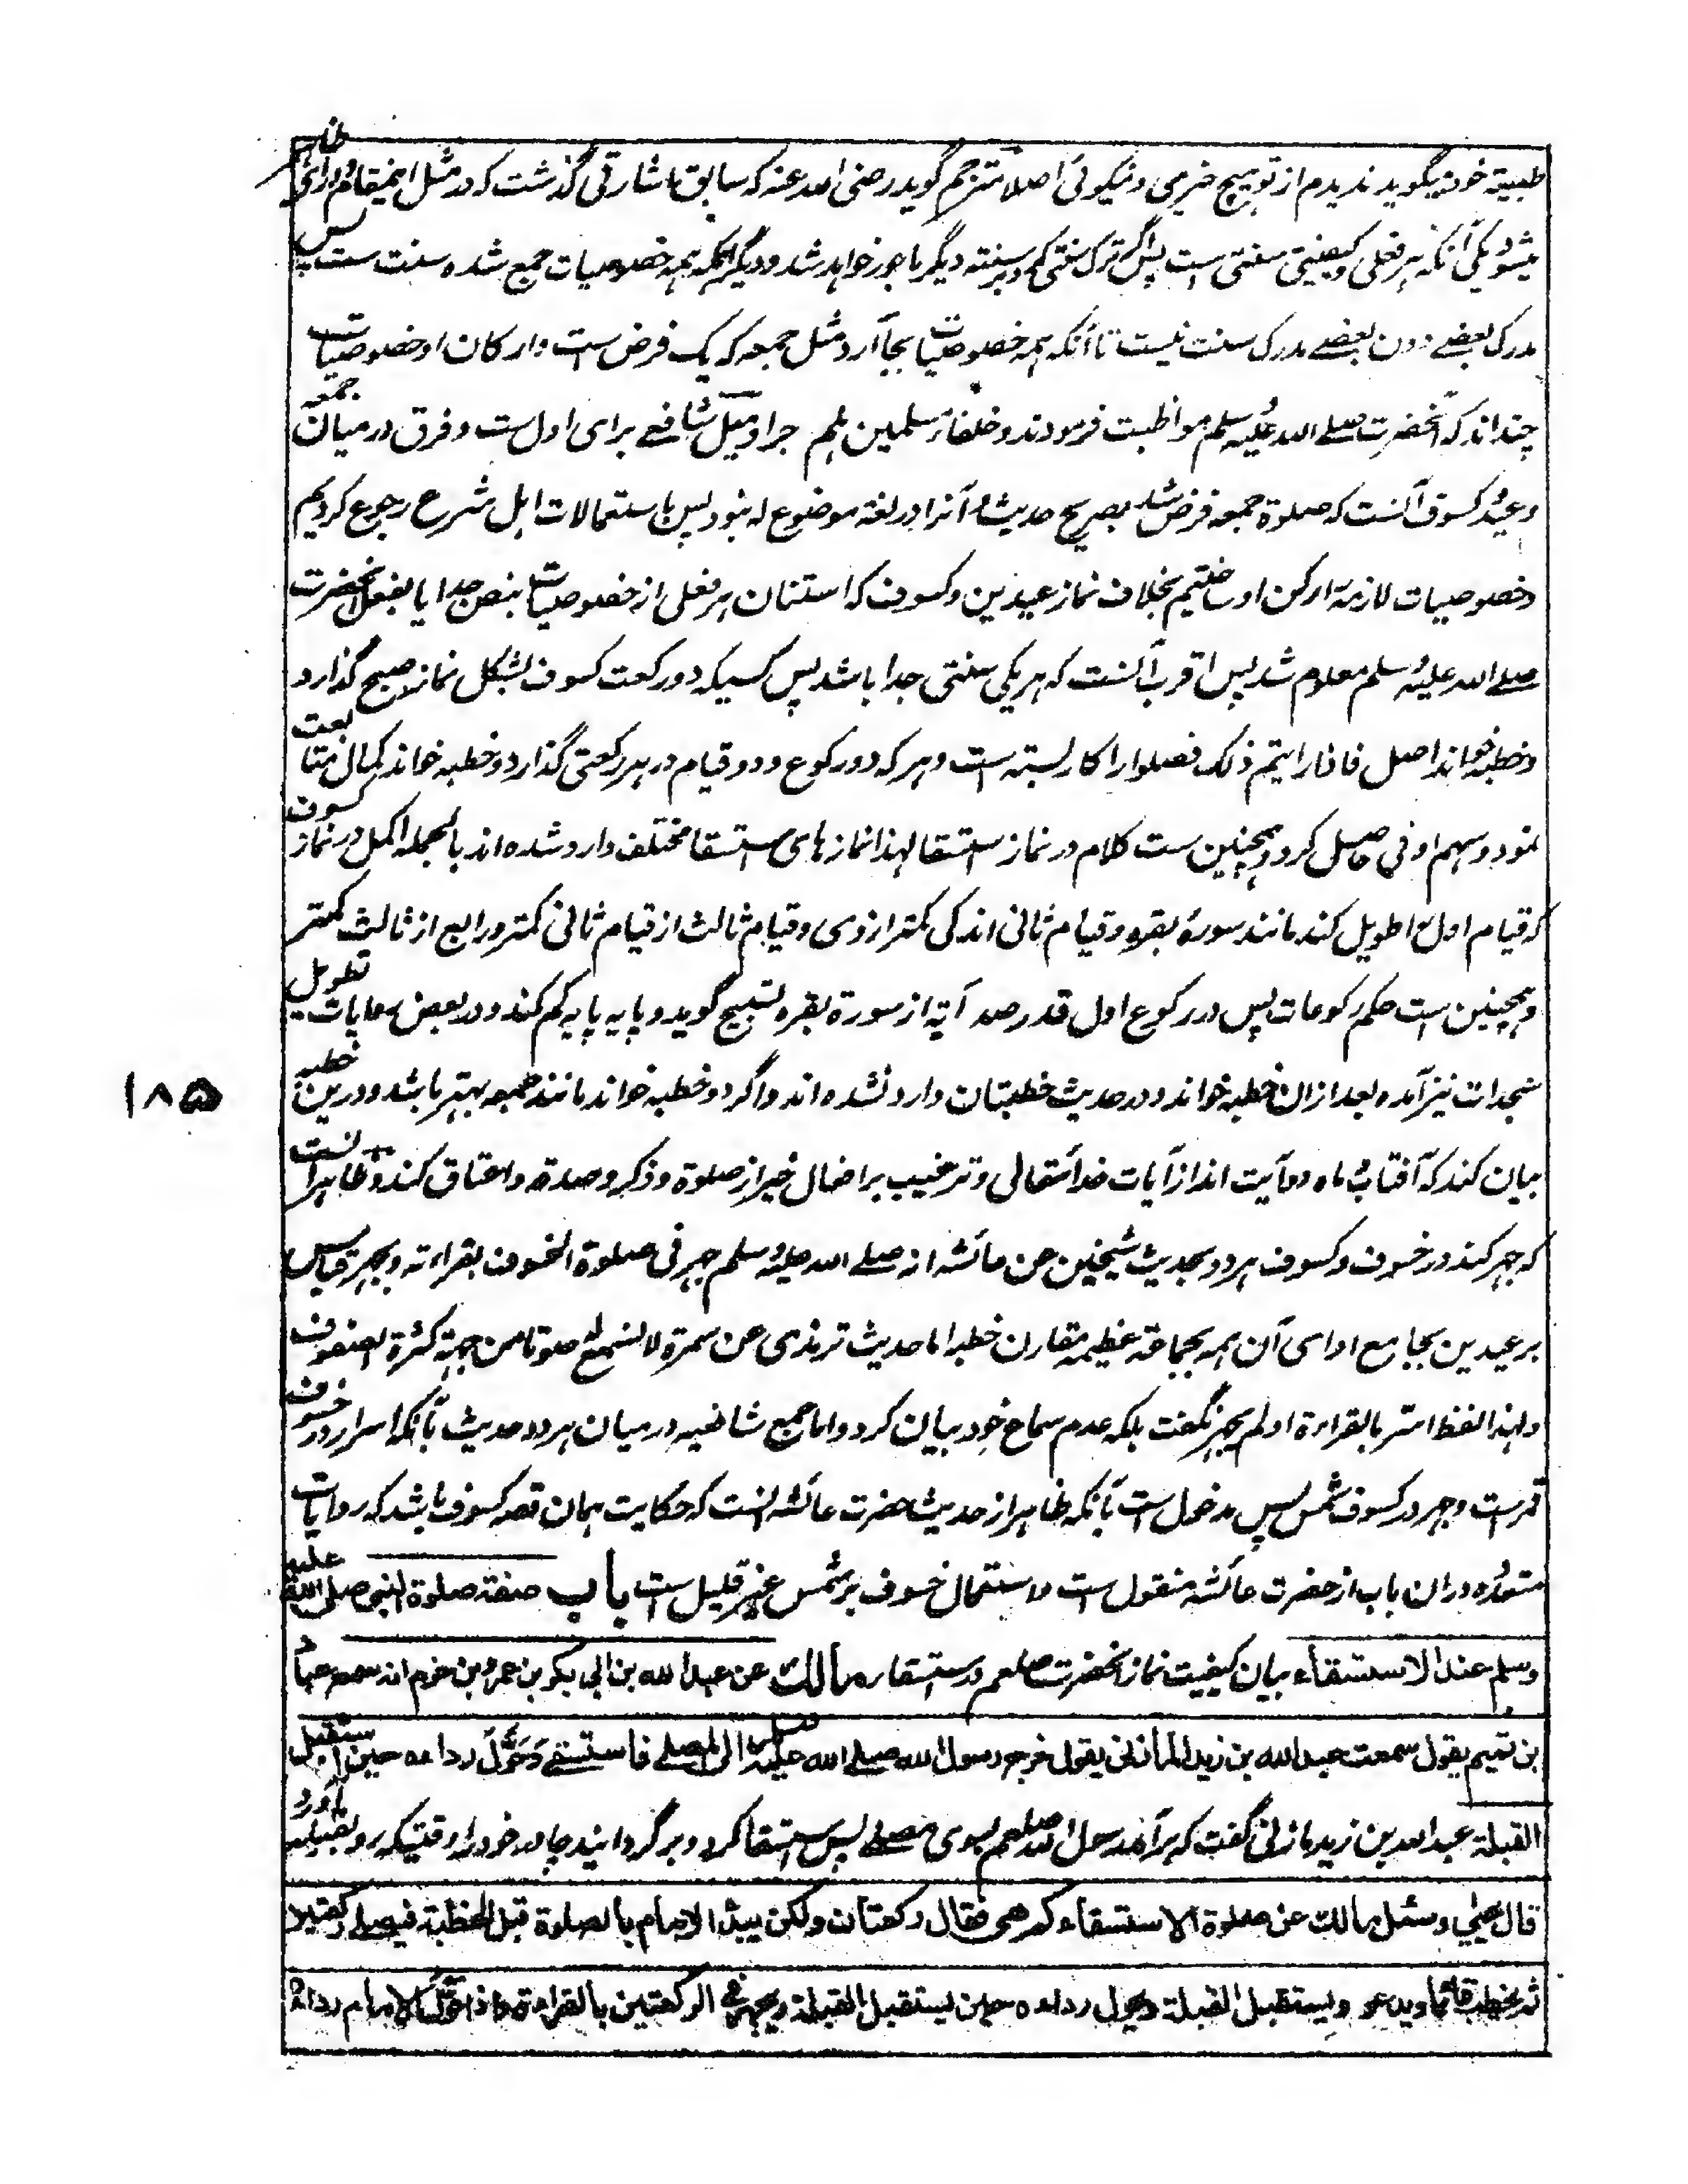 طبیعته خود بگوید ندیدم از تو هیچ خیر می و نیکوئی اصلا مترجم گوید رضی الله عنه که سابق اشارتی گذشت که در مثل اینمقام دو رای ظاهر
میشود یکی آنکه هر فعلی و کیفیتی سنتی است پس اگر ترک سنتی کرد بر سنته دیگر ماجور خواهد شد و دیگر آنکه همه خصوصیات جمع شده سنت ست پس
مدرک بعضے دون بعضے مدرک سنت نیست تا آنکه همه خصوصیات بجا آرد مثل جمعه که یک فرض ست و ارکان او خصوصیات
چند اند که آنحضرت صلے الله علیه وسلم مواظبت فرمودند و خلفا و مسلمین هلم جرا و میل شافعے برای اول ست و فرق درمیان جمعه
و عید و کسوف آنست که صلوة جمعه فرض شد بصریح حدیث و آنرا در لغته موضوع له نبود پس باستعمالات اهل شرع رجوع کردیم
و خصوصیات لازمه را رکن او ساختیم بخلاف نماز عیدین و کسوف که استنان هر فعلی از خصوصیات بنص جدا یا بفعل آنحضرت
صلے الله علیه وسلم معلوم شد پس اقرب آنست که هر یکی سنتی جدا باشد پس کسیکه دو رکعت کسوف بشکل نماز صبح گذارد
و خطبه خواند اصل فاذا رایتم ذلک فصلوا را کار بسته است و هر که دو رکوع و دو قیام در هر رکعتی گذارد و خطبه خواند کمال متابعت
نمود و سهم اوفی حاصل کرد و همچنین ست کلام در نماز استسقا لهذا نمازهای استسقا مختلف وارد شده اند بالجمله اکمل در نماز کسوف
که قیام اول را طویل کند مانند سورهٔ بقره و قیام ثانی اندکی کمتر از وی و قیام ثالث از قیام ثانی کمتر و رابع از ثالث کمتر
و همچنین ست حکم رکوعات پس در رکوع اول قدر صد آیة از سورة بقره تسبیح گوید و پایه پایه کم کند و در بعض روایات تطویل
سجدات نیز آمده بعد ازان خطبه خواند و در حدیث خطبتان وارد نشده اند و اگر دو خطبه خواند مانند جمعه بهتر باشد و درین خطبه
بیان کند که آفتاب و ماه دو آیت اند از آیات خدا تعالی و ترغیب بر افعال خیر از صلوة و ذکر و صدقه و اعتاق کند و ظاهر آنست
که جهر کند در خسوف و کسوف هر دو بحدیث شیخین عن عائشه انه صلے الله علیه وسلم جهر فی صلوة الخسوف بقراءته و بجهر قیاس
بر عیدین بجامع ادای آن همه بجماعة عظیمه مقارن خطبه اما حدیث ترمذی عن سمرة لا نسمع له صوتا من جهة کثرة الصفوف
و لهذا لفظ اسر بالقراءة او لم یجهر نگفت بلکه عدم سماع خود بیان کرد و اما جمع شافعیه درمیان هر دو حدیث بآنکه اسرار در خسوف
قمر است و جهر در کسوف شمس پس مدخول است بآنکه ظاهر از حدیث حضرت عائشه آنست که حکایت همان قصه کسوف باشد که روایات
متعدده دران باب از حضرت عائشه منقول است و استعمال خسوف بر شمس غیر قلیل است باب صفة صلوة النبی صلی الله علیه
وسلم عند الاستسقاء بیان کیفیت نماز آنحضرت صلعم در استسقا مالک عن عبد الله بن ابی بکر بن عمرو بن حزم انه سمع عباد
بن تمیم یقول سمعت عبد الله بن زید المازنی یقول خرج رسول الله صلے الله علیه وسلم الی المصلے فاستسقے وحَوَّل رداءه حین استقبل
القبلة عبد الله بن زید مازنی گفت که برآمد رسول الله صلعم بسوی مصلے پس استسقا کرد و برگردانید چادر خود را وقتیکه رو بقبله آورد
قال یحیٰی وسئل مالک عن صلوة الاستسقاء کم هی فقال رکعتان ولکن یبدأ الامام بالصلوة قبل الخطبة فیصلے رکعتین
ثم یخطب قائما ویدعو ویستقبل القبلة ویحول رداءه حین یستقبل القبلة ویجهر فی الرکعتین بالقراءة واذا حَوَّل الامام رداءه
۱۸۵